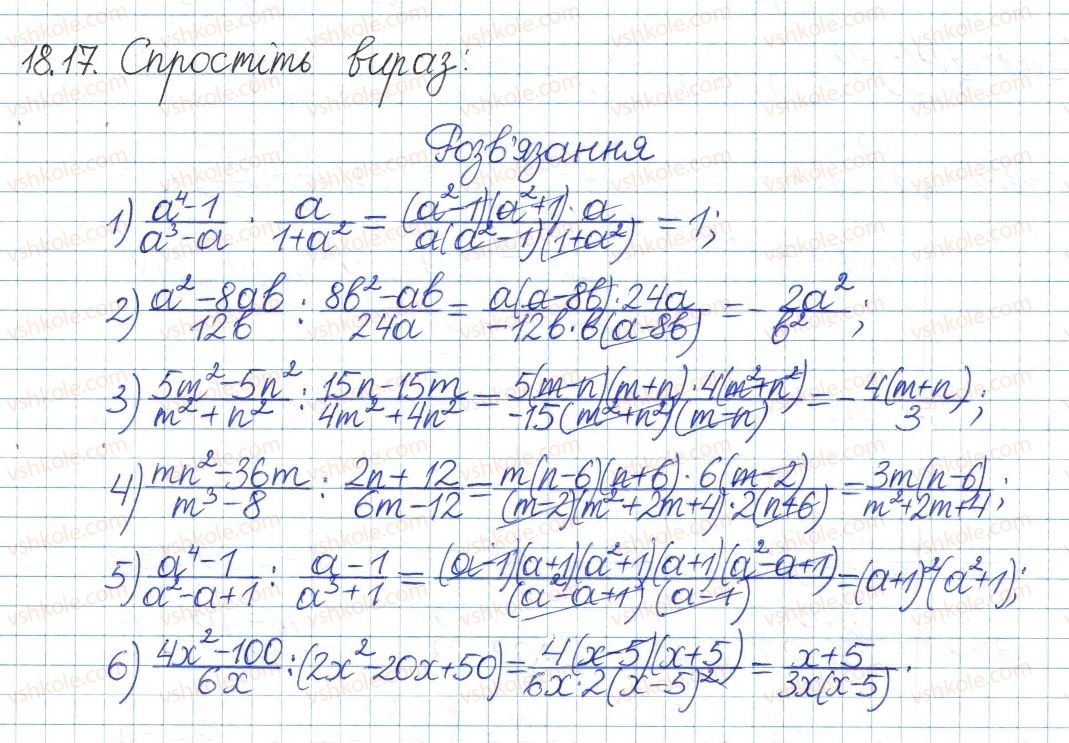 18.17. Спростіть вираз:
Розв'язання
1) (a⁴-1)/(a³-a) · a/(1+a²) = ((a²-1)(a²+1)·a)/(a(a²-1)(1+a²)) = 1;
2) (a²-8ab)/(12b) : (8b²-ab)/(24a) = (a(a-8b)·24a)/(-12b·b(a-8b)) = -2a²/b²;
3) (5m²-5n²)/(m²+n²) : (15n-15m)/(4m²+4n²) = (5(m-n)(m+n)·4(m²+n²))/(-15(m²+n²)(m-n)) = -4(m+n)/3;
4) (mn²-36m)/(m³-8) : (2n+12)/(6m-12) = (m(n-6)(n+6)·6(m-2))/((m-2)(m²+2m+4)·2(n+6)) = 3m(n-6)/(m²+2m+4);
5) (a⁴-1)/(a²-a+1) : (a-1)/(a³+1) = ((a-1)(a+1)(a²+1)(a+1)(a²-a+1))/((a²-a+1)(a-1)) = (a+1)²(a²+1);
6) (4x²-100)/(6x) : (2x²-20x+50) = (4(x-5)(x+5))/(6x·2(x-5)²) = (x+5)/(3x(x-5)).